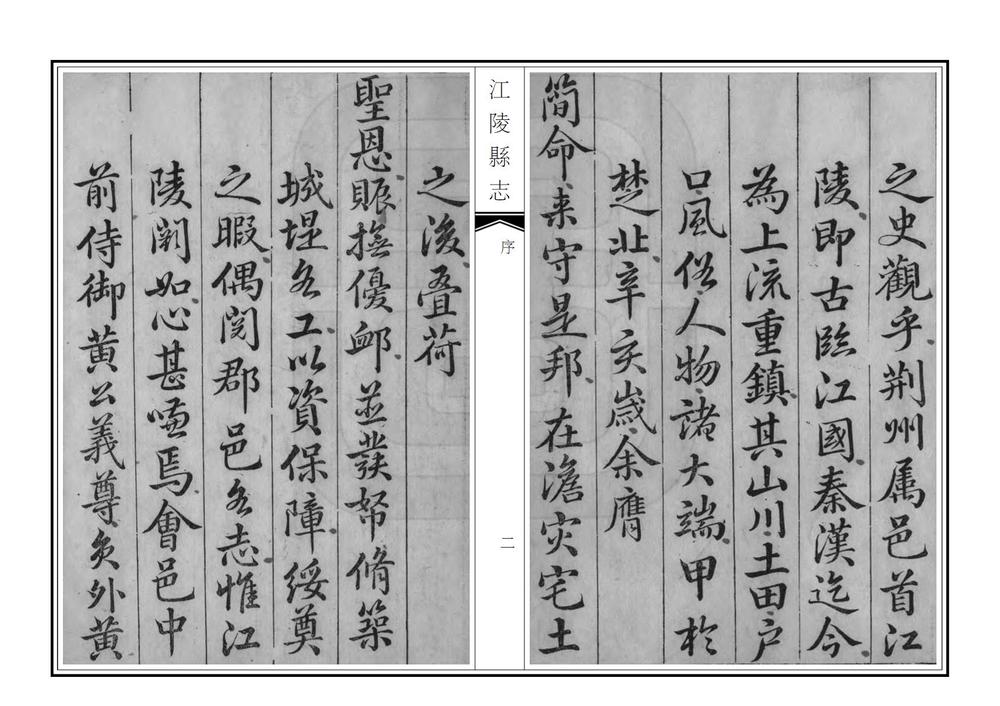 之史觀乎荆州属邑首江
陵即古臨江國秦漢迄今
為上流重鎮其山川土田户
口風俗人物諸大端甲於
楚北辛亥歲余膺
簡命来守是邦在澹灾宅土
江陵縣志
序
二
之後叠荷
聖恩賑撫優衈並發帑脩築
城堤各工以資保障綏奠
之暇偶閲郡邑各志惟江
陵闕如心甚嗛焉會邑中
前侍御黄公義尊炙外黄